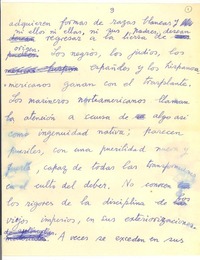 3
adquieren formas de razas blancas y
ni ellos ni ellas, ni sus padres, desean
regresar a su tierra de
origen. Los negros, los judíos, los
españoles y los hispanos
mericanos ganan con el trasplante.
Los marineros norteamericanos llaman
la atención a causa de algo así
como ingenuidad nativa; parecen
pueriles, con una puerilidad
capaz de todas las
el culto del deber. No conocen
los rigores de la disciplina de los
viejos imperios, en sus exteriorizaciones
A veces se exceden en sus